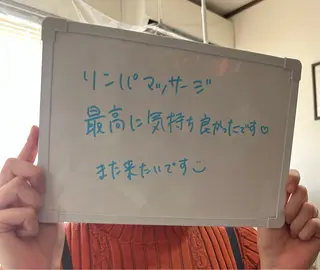 リンパマッサージ
最高に気持ち良かったです♡
また来たいです☺